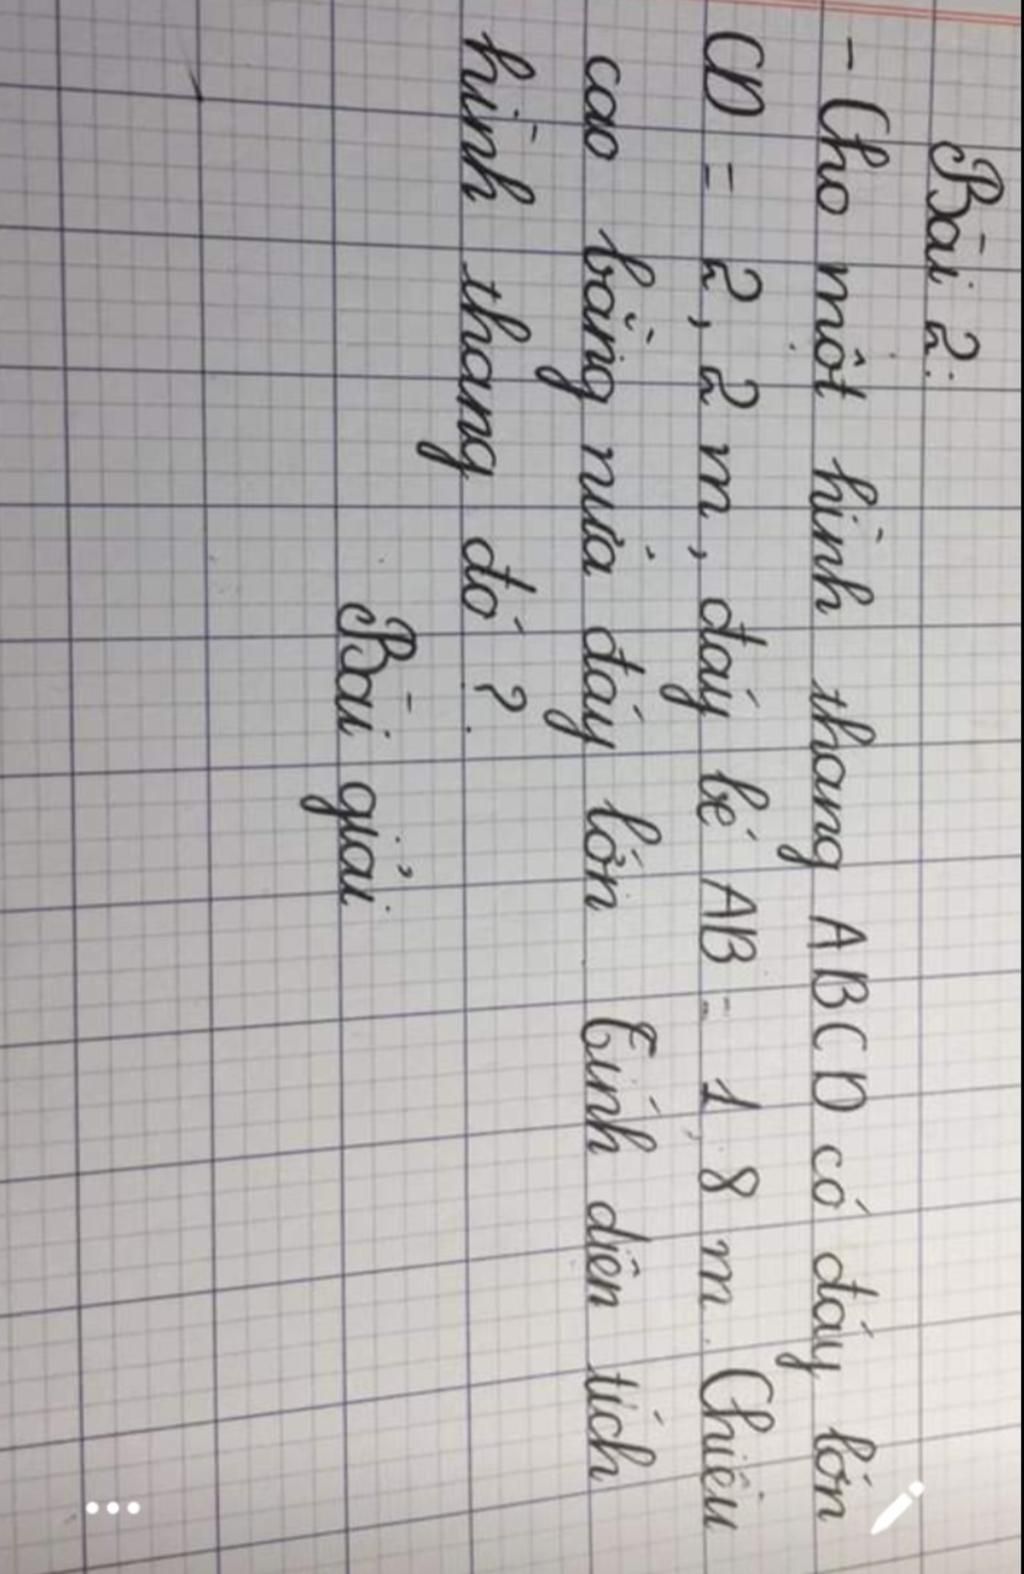 Bài 2:
- Cho một hình thang ABCD có đáy lớn
CD = 2,2 m, đáy bé AB = 1,8 m. Chiều
cao bằng nửa đáy lớn. Tính diện tích
hình thang đó?
Bài giải